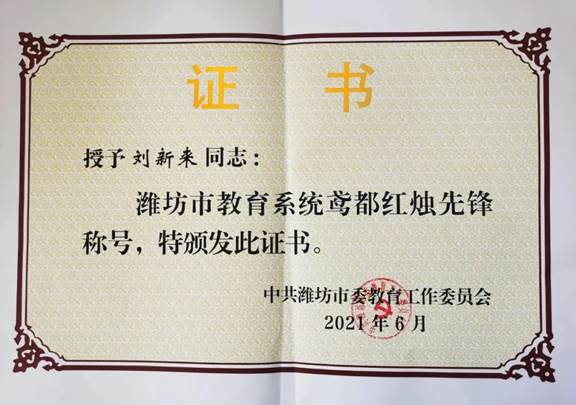 证 书
授予 刘新来 同志：
潍坊市教育系统鸢都红烛先锋
称号，特颁发此证书。
中共潍坊市委教育工作委员会
2021 年 6 月